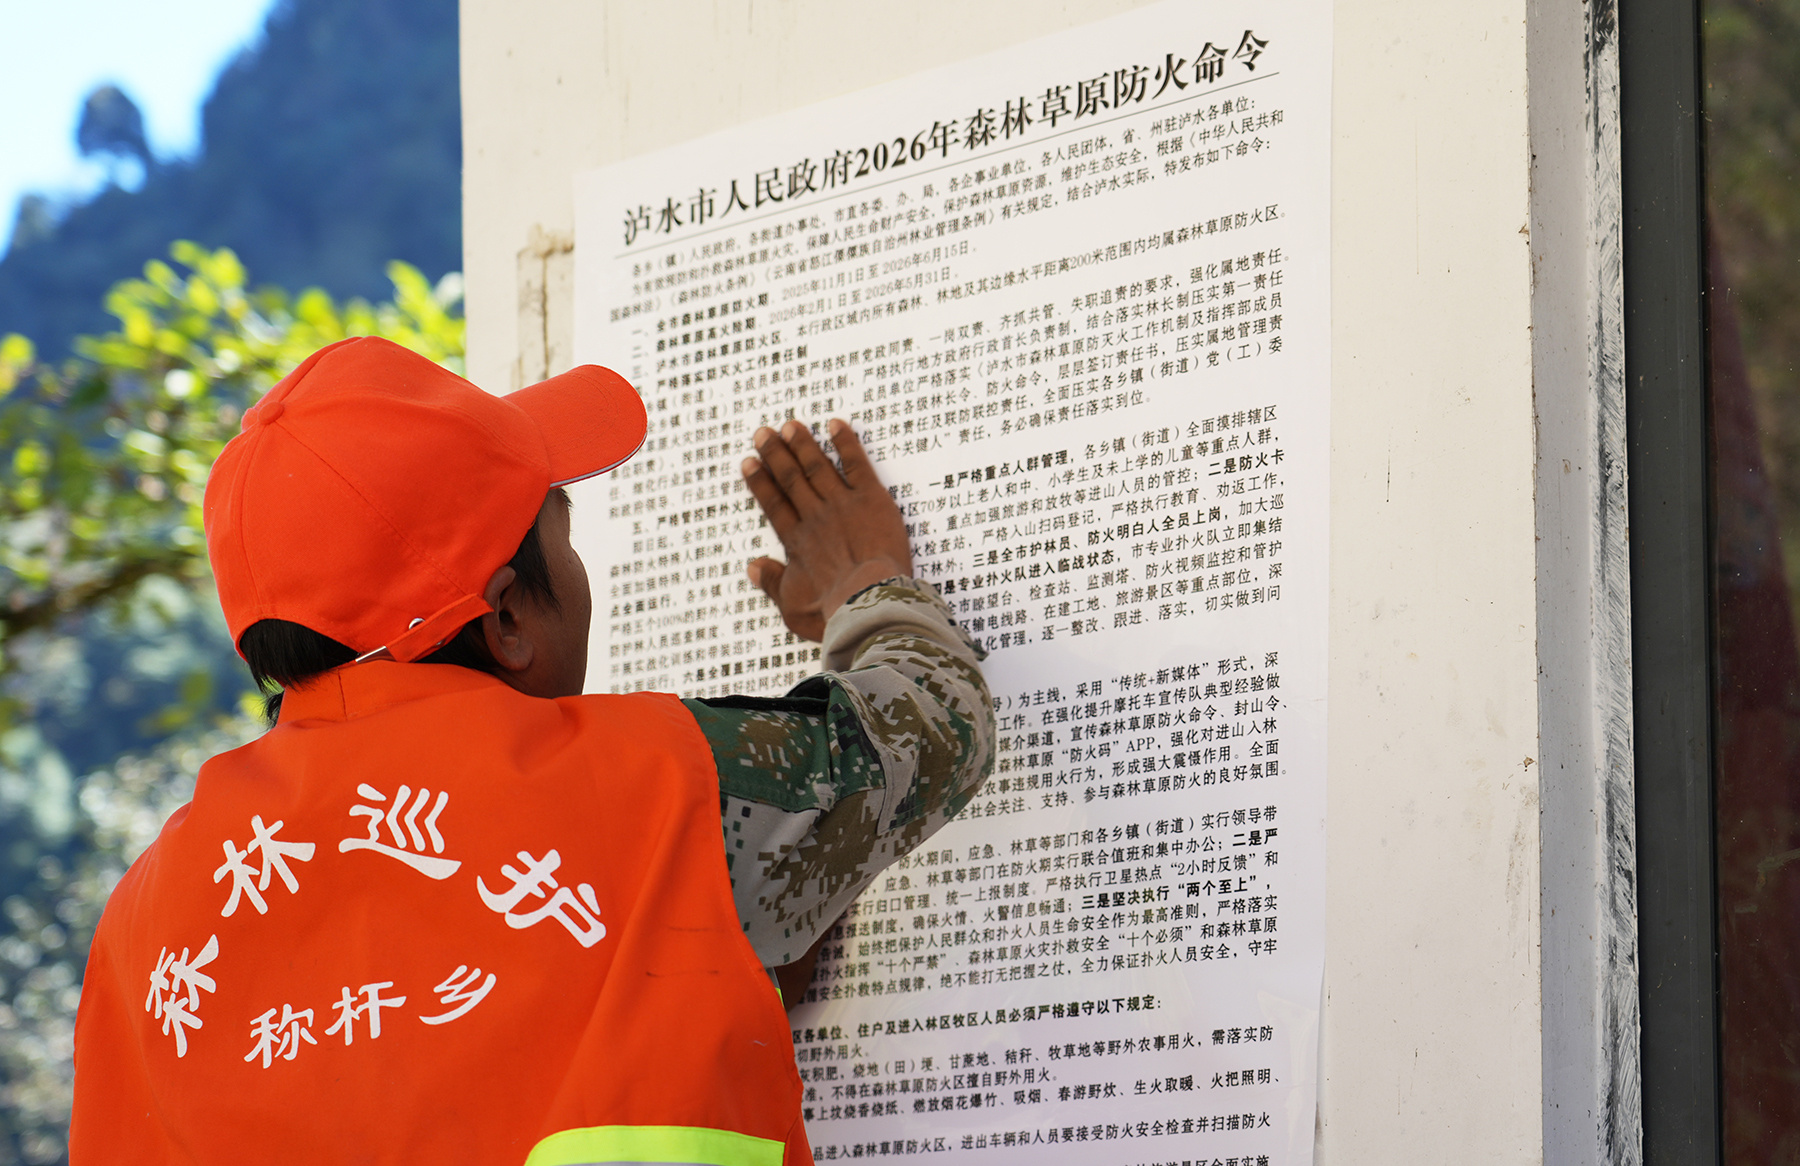 泸水市人民政府2026年森林草原防火命令
各乡（镇）人民政府，各街道办事处，市直各委、办、局，各企事业单位，各人民团体，省、州驻泸水各单位：
为有效预防和扑救森林草原火灾，保障人民生命财产安全，保护森林草原资源，维护生态安全，根据《中华人民共和
国森林法》《森林防火条例》《云南省怒江傈僳族自治州林业管理条例》有关规定，结合泸水实际，特发布如下命令：
一、全市森林草原防火期，2025年11月1日至2026年6月15日。
二、森林草原高火险期，2026年2月1日至2026年5月31日。
三、泸水市森林草原防火区，本行政区域内所有森林、林地及其边缘水平距离200米范围内均属森林草原防火区。
严格落实防灭火工作责任制
乡镇（街道）、各成员单位要严格按照党政同责、一岗双责、齐抓共管、失职追责的要求，强化属地责任。
乡镇（街道）防灭火工作责任机制，严格执行地方政府行政首长负责制，结合落实林长制压实第一责任
草原火灾防控责任。各乡镇（街道）、成员单位严格落实《泸水市森林草原防灭火工作机制及指挥部成员
单位职责》，按照职责分工 责 严格落实各级林长令、防火命令，层层签订责任书，压实属地管理责
任、细化行业监管责任、 位主体责任及联防联控责任，全面压实各乡镇（街道）党（工）委
和政府领导、行业主管部 “五个关键人”责任，务必确保责任落实到位。
五、严格管控野外火源 管控。一是严格重点人群管理，各乡镇（街道）全面摸排辖区
即日起，全市防灭火力量 林区70岁以上老人和中、小学生及未上学的儿童等重点人群，
森林防火特殊人群5种人（ 制度，重点加强旅游和放牧等进山人员的管控；二是防火卡
全面加强特殊人群的重点 火检查站，严格入山扫码登记，严格执行教育、劝返工作，
点全面运行，各乡镇（街 下林外；三是全市护林员、防火明白人全员上岗，加大巡
严格五个100%的野外火源管理 四是专业扑火队进入临战状态，市专业扑火队立即集结
防护林人员巡查频度、密度和力 全市瞭望台、检查站、监测塔、防火视频监控和管护
开展实战化训练和带装巡护；五是 区输电线路、在建工地、旅游景区等重点部位，深
全面运行；六是全覆盖开展隐患排查 化管理，逐一整改、跟进、落实，切实做到问
号）为主线，采用“传统+新媒体”形式，深
工作。在强化提升摩托车宣传队典型经验做
媒介渠道，宣传森林草原防火命令、封山令、
森林草原“防火码”APP，强化对进山入林
农事违规用火行为，形成强大震慑作用。全面
全社会关注、支持、参与森林草原防火的良好氛围。
防火期间，应急、林草等部门和各乡镇（街道）实行领导带
，应急、林草等部门在防火期实行联合值班和集中办公；二是严
实行归口管理、统一上报制度。严格执行卫星热点“2小时反馈”和
息报送制度，确保火情、火警信息畅通；三是坚决执行“两个至上”，
告诫，始终把保护人民群众和扑火人员生命安全作为最高准则，严格落实
原扑火指挥“十个严禁”、森林草原火灾扑救安全“十个必须”和森林草原
安全扑救特点规律，绝不能打无把握之仗，全力保证扑火人员安全，守牢
区各单位、住户及进入林区牧区人员必须严格遵守以下规定：
切野外用火。
灰积肥，烧地（田）埂、甘蔗地、秸秆、牧草地等野外农事用火，需落实防
准，不得在森林草原防火区擅自野外用火。
事上坟烧香烧纸、燃放烟花爆竹、吸烟、春游野炊、生火取暖、火把照明、
品进入森林草原防火区，进出车辆和人员要接受防火安全检查并扫描防火
森林巡护
称杆乡